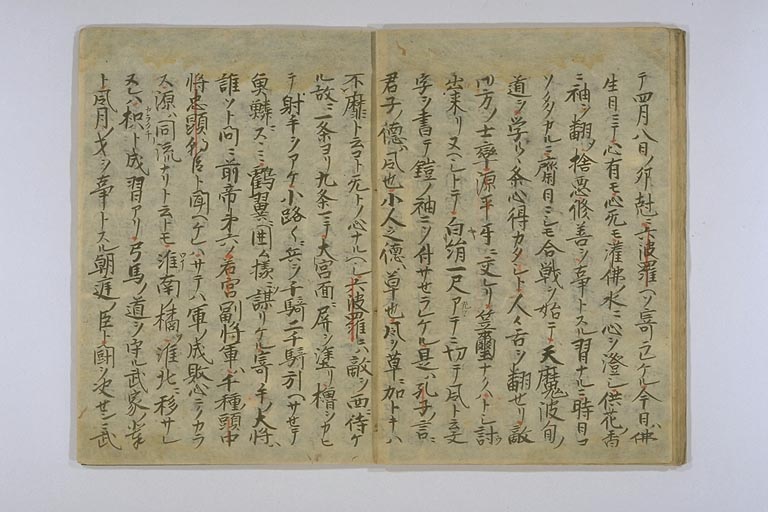 テ四月八日ノ卯尅ニ六波羅ヘソ寄ヒケル今日ハ佛
生日ニテ心有モ心无モ灌佛ノ水ニ心ヲ澄シ供花
ニ袖ヲ翻シ捨悪修善ヲ事トスル習ナルニ時日コ
ソ多カルニ齋日ニシモ合戦ヲ始テ天魔波旬ノ
道ヲ学ハルヽ条心得カタシト人々舌ヲ翻セリ敵
四方ノ士卒源平互ニ交レリ笠璽ナクハト
出来リ又ヘシトテ白絹ヲ一尺アテニ切テ風ト云文
字ヲ書テ鎧ノ袖ニソ付サセラレケル是ハ孔子ノ言
君子ノ徳ハ風也小人ノ徳ハ草也風ヲ草ニ加トキハ
不靡ト云コト无トノ心ナルヘシ六波羅ニハ敵ヲ西ニ待ケ
ル故ニ三条ヨリ九条マテ大宮面ニ屏ヲ塗リ櫓ヲカヒ
テ射手ヲアケ小路々々ニ兵ヲ千騎二千騎引ヘサセテ
魚鱗ニスヽミ鶴翼ニ囲ム様ヲソ謀リケル寄手ノ大将ハ
誰ソト問ニ前帝第六ノ若宮副将軍ハ千種頭中
将忠顕朝臣ト聞ヘケレハサテハ軍ノ成敗心ニクカラ
ス源ハ同流ナリト云トモ淮南ノ橘ハ淮北ニ移サレ
又ハ枳ト成習アリ弓馬ノ道ヲ守ル武家ノ輩
ト風月ノ才ヲ事トスル朝廷ノ臣ト闘ヲ决センニ武